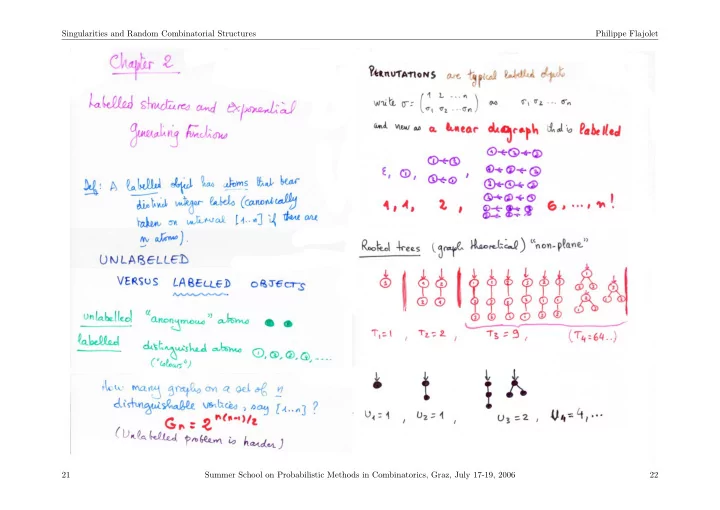 Singularities and Random Combinatorial Structures
Philippe Flajolet
Chapter 2
Labelled structures and Exponential
Generating Functions
Def: A labelled object has atoms that bear
distinct integer labels (canonically
taken on interval [1..n] if there are
n atoms).
UNLABELLED
VERSUS LABELLED OBJECTS
unlabelled "anonymous" atoms
labelled distinguished atoms ①,②,③,④,....
("colours")
How many graphs on a set of n
distinguishable vertices, say [1..n] ?
Gn = 2^{n(n-1)/2}
(Unlabelled problem is harder)
PERMUTATIONS are typical labelled objects
write σ = (1 2 ... n / σ1 σ2 ... σn) as σ1 σ2 ... σn
and view as a linear digraph that is labelled
ε, ①, , ,
1, 1, 2, 6, ..., n!
Rooted trees (graph theoretical) "non-plane"
T1=1 , T2=2 , T3=9 , (T4=64..)
U1=1 , U2=1 , U3=2 , U4=4,...
21
Summer School on Probabilistic Methods in Combinatorics, Graz, July 17-19, 2006
22